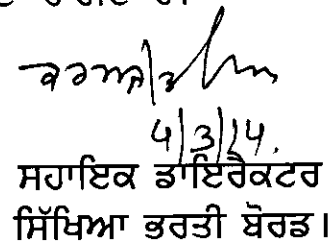 4/3/24.
ਸਹਾਇਕ ਡਾਇਰੈਕਟਰ
ਸਿੱਖਿਆ ਭਰਤੀ ਬੋਰਡ।